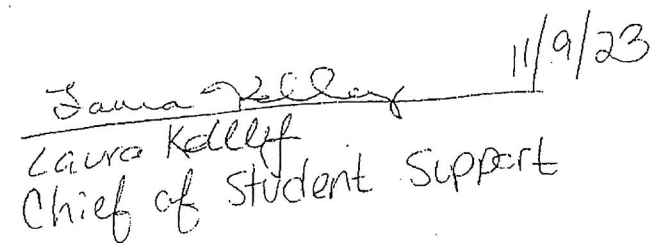 Laura Kelley 11/9/23
Laura Kelley
Chief of Student Support